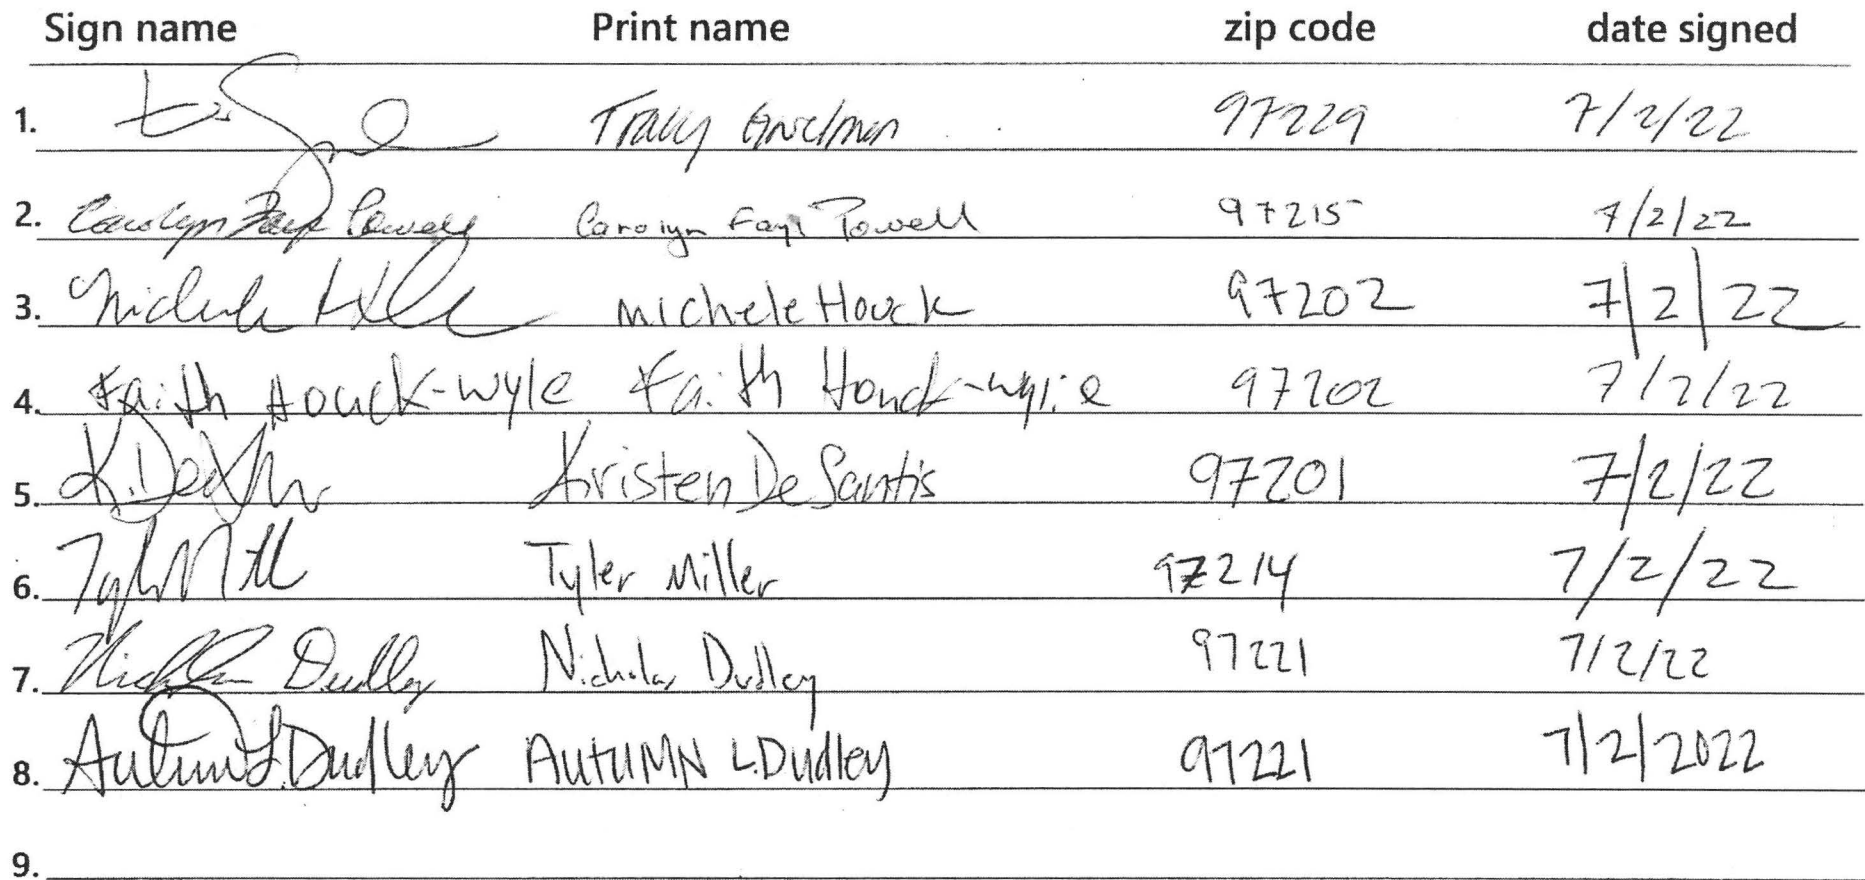 Sign name Print name zip code date signed
1. Tracy 97229 7/2/22
2. Carolyn Faye Powell Carolyn Faye Powell 97215 7/2/22
3. Michele Michele Houck 97202 7/2/22
4. Faith Houck-Wyle Faith Houck-Wylie 97202 7/2/22
5. Kristen DeSantis 97201 7/2/22
6. Tyler Miller 97214 7/2/22
7. Nicholas Dudley Nicholas Dudley 97221 7/2/22
8. Autumn L. Dudley AUTUMN L. Dudley 97221 7/2/2022
9.